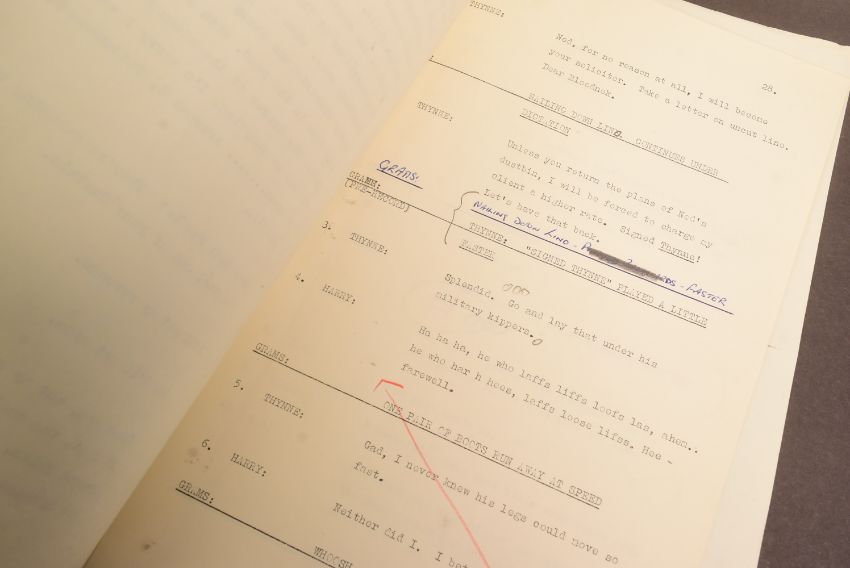 THYNNE:
28.
Ned, for no reason at all, I will become
your solicitor. Take a letter on uncut lino.
Dear Bloodnok.
NAILING DOWN LINO CONTINUES UNDER
DICTATION
THYNNE:
Unless you return the plans of Ned's
dustbin, I will be forced to charge my
client a higher rate. Signed Thynne!
Let's have that back.
GRAMS:
NAILING DOWN LINO - FASTER
GRAMS:
(PRE-RECORD)
THYNNE: "SIGNED THYNNE" PLAYED A LITTLE
FASTER
3. THYNNE:
Splendid. Go and lay that under his
military kippers.
4. HARRY:
Ha ha ha, he who laffs liffs loofs las, ahem..
he who har h hees, laffs loose lifss. Hee -
farewell.
GRAMS:
ONE PAIR OF BOOTS RUN AWAY AT SPEED
5. THYNNE:
Gad, I never knew his legs could move so
fast.
6. HARRY:
Neither did I. I bet
GRAMS:
WHOOSH